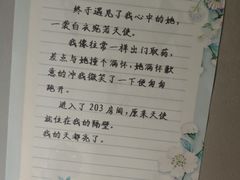 终于遇见了我心中的她，
一袭白衣宛若天使。
我像往常一样出门取药，
差点与她撞个满怀，她满怀歉
意的冲我微笑了一下便匆匆
跑开。
进入了203房间，原来天使
就住在我的隔壁。
我的天都亮了。